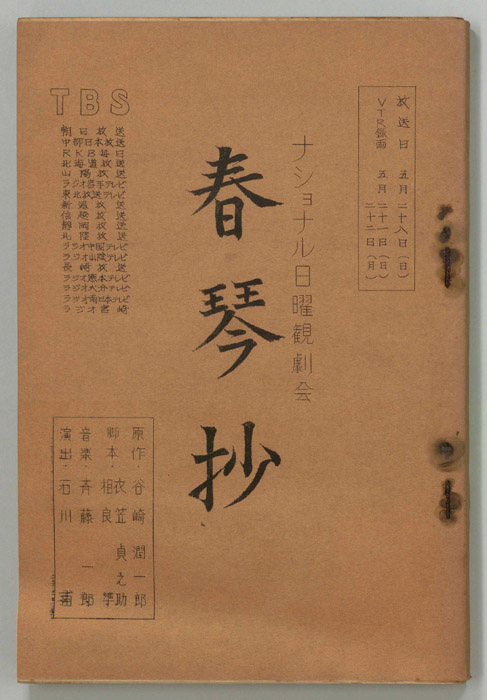 放送日　五月二十八日（日）
VTR録画　五月二十一日（日）
二十二日（月）
ナショナル日曜観劇会
春琴抄
TBS
朝日放送
中部日本放送
RKB毎日
北海道放送
山陽放送
ラジオ岩手テレビ
東北放送テレビ
新潟放送
信越放送
静岡放送
北陸放送
ラジオ中国テレビ
ラジオ山陰テレビ
長崎放送
ラジオ熊本テレビ
ラジオ大分テレビ
ラジオ南日本テレビ
ラジオ宮崎
原作・谷崎潤一郎
脚本・衣笠貞之助
相良準
音楽・斉藤一郎
演出・石川甫